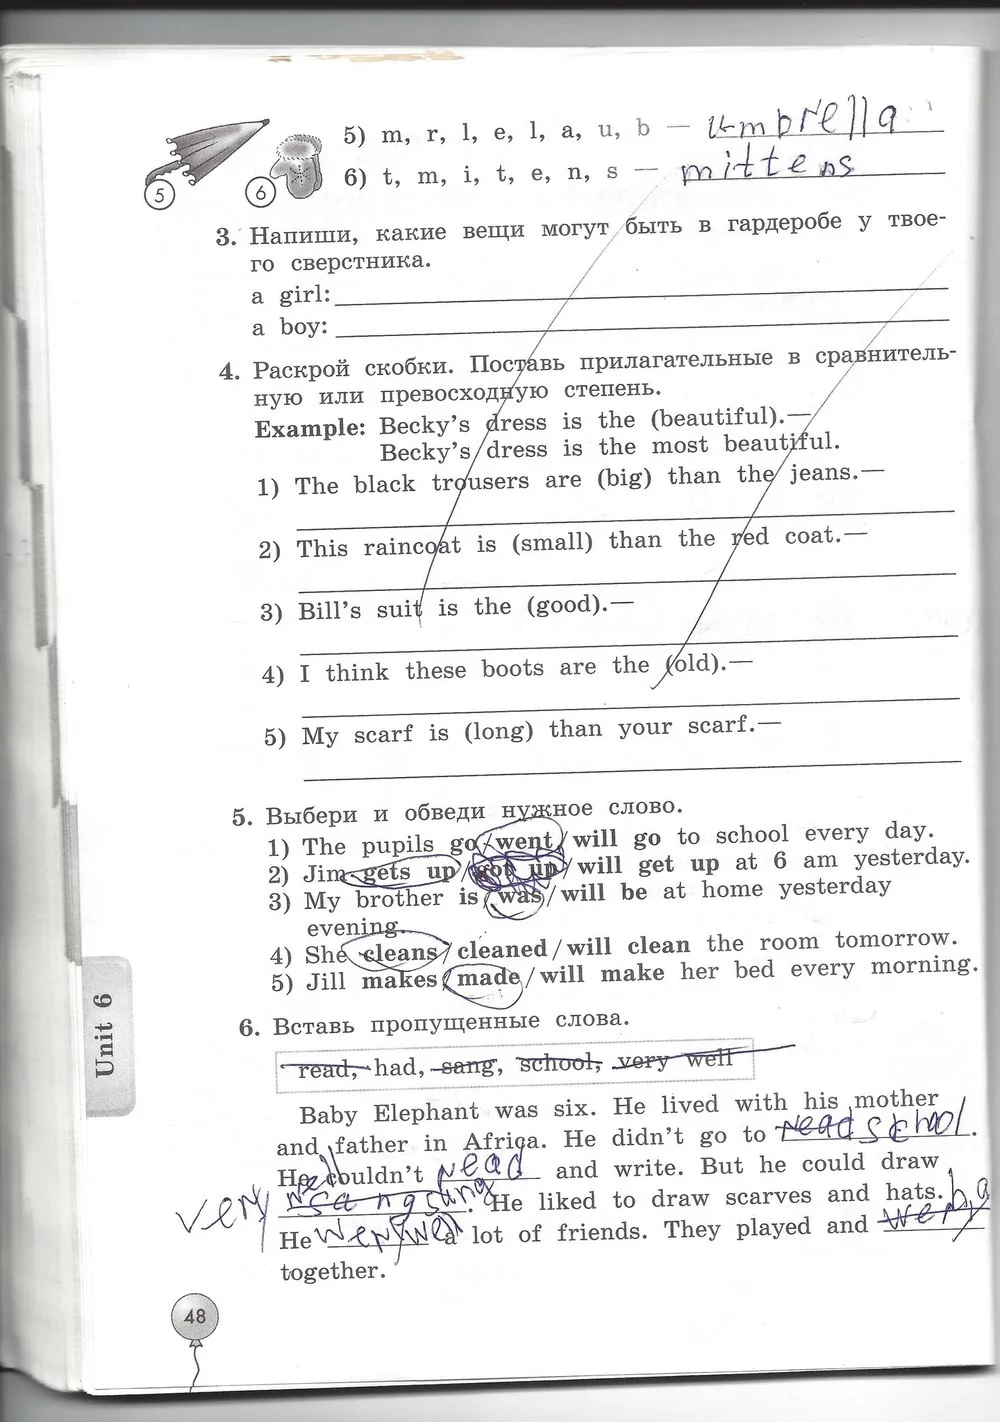 5) m, r, l, e, l, a, u, b — umbrella
5
6
6) t, m, i, t, e, n, s — mittens
3. Напиши, какие вещи могут быть в гардеробе у твое-
го сверстника.
a girl:
a boy:
4. Раскрой скобки. Поставь прилагательные в сравнитель-
ную или превосходную степень.
Example: Becky's dress is the (beautiful).—
Becky's dress is the most beautiful.
1) The black trousers are (big) than the jeans.—
2) This raincoat is (small) than the red coat.—
3) Bill's suit is the (good).—
4) I think these boots are the (old).—
5) My scarf is (long) than your scarf.—
5. Выбери и обведи нужное слово.
1) The pupils go/went/will go to school every day.
2) Jim gets up/got up/will get up at 6 am yesterday.
3) My brother is/was/will be at home yesterday
evening.
4) She cleans/cleaned/will clean the room tomorrow.
5) Jill makes/made/will make her bed every morning.
Unit 6
6. Вставь пропущенные слова.
read, had, sang, school, very well
Baby Elephant was six. He lived with his mother
and father in Africa. He didn't go to read school.
He couldn't read and write. But he could draw
very sang sang. He liked to draw scarves and hats.
He a lot of friends. They played and
together.
48